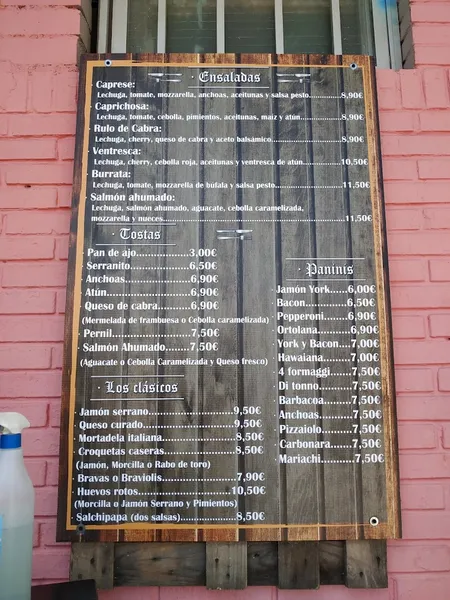 · Ensaladas
· Caprese:
Lechuga, tomate, mozzarella, anchoas, aceitunas y salsa pesto..............8,90€
· Caprichosa:
Lechuga, tomate, cebolla, pimientos, aceitunas, maíz y atún..............8,90€
· Rulo de Cabra:
Lechuga, cherry, queso de cabra y aceto balsámico..............8,90€
· Ventresca:
Lechuga, cherry, cebolla roja, aceitunas y ventresca de atún..............10,50€
· Burrata:
Lechuga, tomate, mozzarella de bufala y salsa pesto..............11,50€
· Salmón ahumado:
Lechuga, salmón ahumado, aguacate, cebolla caramelizada,
mozzarella y nueces..............11,50€
· Tostas
· Pan de ajo..............3,00€
· Serranito..............6,50€
· Anchoas..............6,90€
· Atún..............6,90€
· Queso de cabra..............6,90€
(Mermelada de frambuesa o Cebolla caramelizada)
· Pernil..............7,50€
· Salmón Ahumado.......7,50€
(Aguacate o Cebolla Caramelizada y Queso fresco)
· Paninis
· Jamón York........6,00€
· Bacon..............6,50€
· Pepperoni........6,90€
· Ortolana..........6,90€
· York y Bacon....7,00€
· Hawaiana........7,00€
· 4 formaggi.......7,50€
· Di tonno..........7,50€
· Barbacoa.........7,50€
· Anchoas..........7,50€
· Pizzaiolo.........7,50€
· Carbonara.......7,50€
· Mariachi..........7,50€
· Los clásicos
· Jamón serrano..............9,50€
· Queso curado..............9,50€
· Mortadela italiana..............8,50€
· Croquetas caseras..............8,50€
(Jamón, Morcilla o Rabo de toro)
· Bravas o Braviolis..............7,90€
· Huevos rotos..............10,50€
(Morcilla o Jamón Serrano y Pimientos)
· Salchipapa (dos salsas)..............8,50€